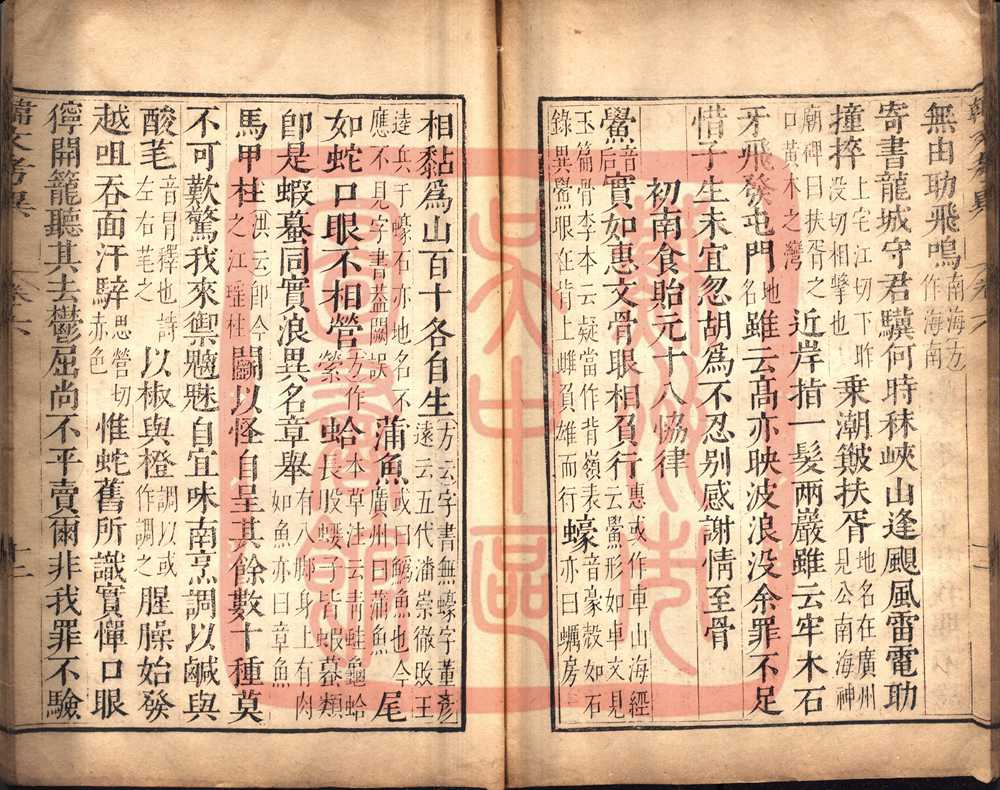 無由助飛鳴南海方作海南
寄書龍城守君驥何時秣峽山逢颶風雷電助
撞捽上宅江切下昨没切相擊也乗潮簸扶胥地名在廣州見公南海神
廟碑曰扶胥之口黃木之灣近岸指一髮兩巖雖云牢木石
牙飛發屯門地名雖云高亦映波浪没余罪不足
惜子生未宜忽胡爲不忍别感謝情至骨
初南食貽元十八協律
鱟音后實如惠文骨眼相負行惠或作車山海經云鱟形如車文見
玉篇骨李本云疑當作背嶺表錄異鱟眼在背上雌負雄而行蠔音豪殻如石亦曰蠣房
相黏爲山百十各自生方云字書無蠔字董彥遠云五代潘崇徹敗王
逵兵于蠔石亦地名不應不見字書葢闕誤蒲魚或曰鱅魚也今廣州曰蒲魚尾
如蛇口眼不相營方作縈蛤本草注云青蛙龜蛤長股蠳子皆蝦蟇類
卽是蝦蟇同實浪異名章舉有八脚身上有肉如魚亦曰章魚
馬甲柱洪云卽今之江瑤柱鬬以怪自呈其餘數十種莫
不可歎驚我來禦魑魅自宜味南烹調以鹹與
酸芼音冒釋也詩左右芼之以椒與橙調以或作調之腥臊始發
越咀吞面汗騂思營切赤色惟蛇舊所識實憚口眼
獰開籠聽其去鬱屈尚不平賣爾非我罪不驗
韓文考異
十二